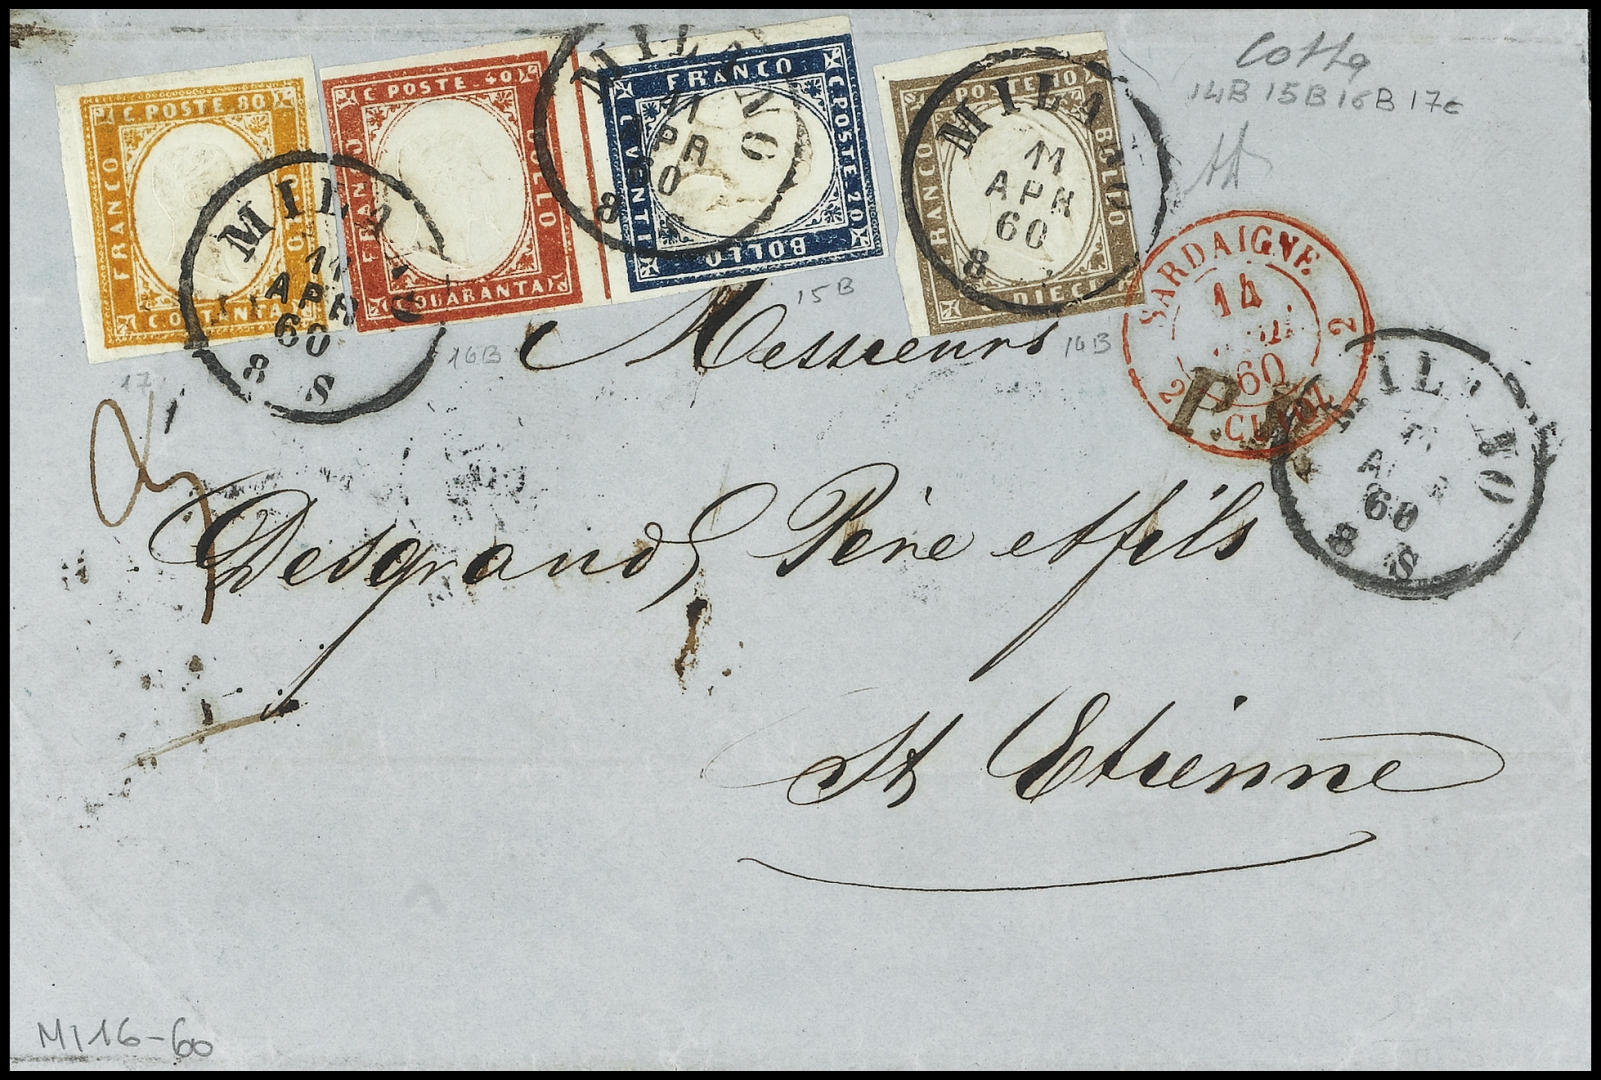 C. POSTE. 80
FRANCO
BOLLO
C. OTTANTA
C. POSTE. 40
FRANCO
BOLLO
C. QUARANTA
FRANCO
C. POSTE 20
BOLLO
C. VENTI
C. POSTE. 10
FRANCO
BOLLO
C. DIECI
MILANO
11
APR
60
8 S
MILANO
11
APR
60
8
MILANO
11
APR
60
8
14B 15B 16B 17c
SARDAIGNE
14
60
2 2
CULOZ
P.D.
MILANO
APR
60
8 S
17
16B
15B
14B
Messieurs
Desgrand Père et fils
St Etienne
MI 16-60